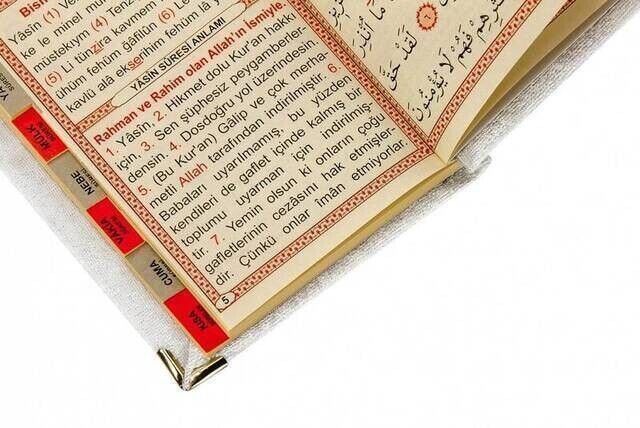 Yâsîn (1)
ke le minel mürs
müstekıym (4) Tenzi
(5) Li tünzira kavmem
ühüm fehüm ğâfilûn (6) Le
kavlü alâ ekserihim fehüm lâ y
YÂSİN SÛRESİ ANLAMI
Rahman ve Rahim olan Allah'ın İsmiyle
1. Yâsin, 2. Hikmet dolu Kur'an hakkı
için. 3. Sen şüphesiz peygamberler-
densin. 4. Dosdoğru yol üzerindesin.
5. (Bu Kur'an) Gâlip ve çok merha-
metli Allah tarafından indirilmiştir. 6.
Babaları uyarılmamış, bu yüzden
kendileri de gaflet içinde kalmış bir
toplumu uyarman için indirilmiş-
tir. 7. Yemin olsun ki onların çoğu
gafletlerinin cezâsını hak etmişler-
dir. Çünkü onlar îmân etmiyorlar.
5
لَقَدْ حَقَّ
فَهُمْ لَا يُؤْمِنُونَ
MÜLK
NEBE
VAKIA
CUMA
KISA